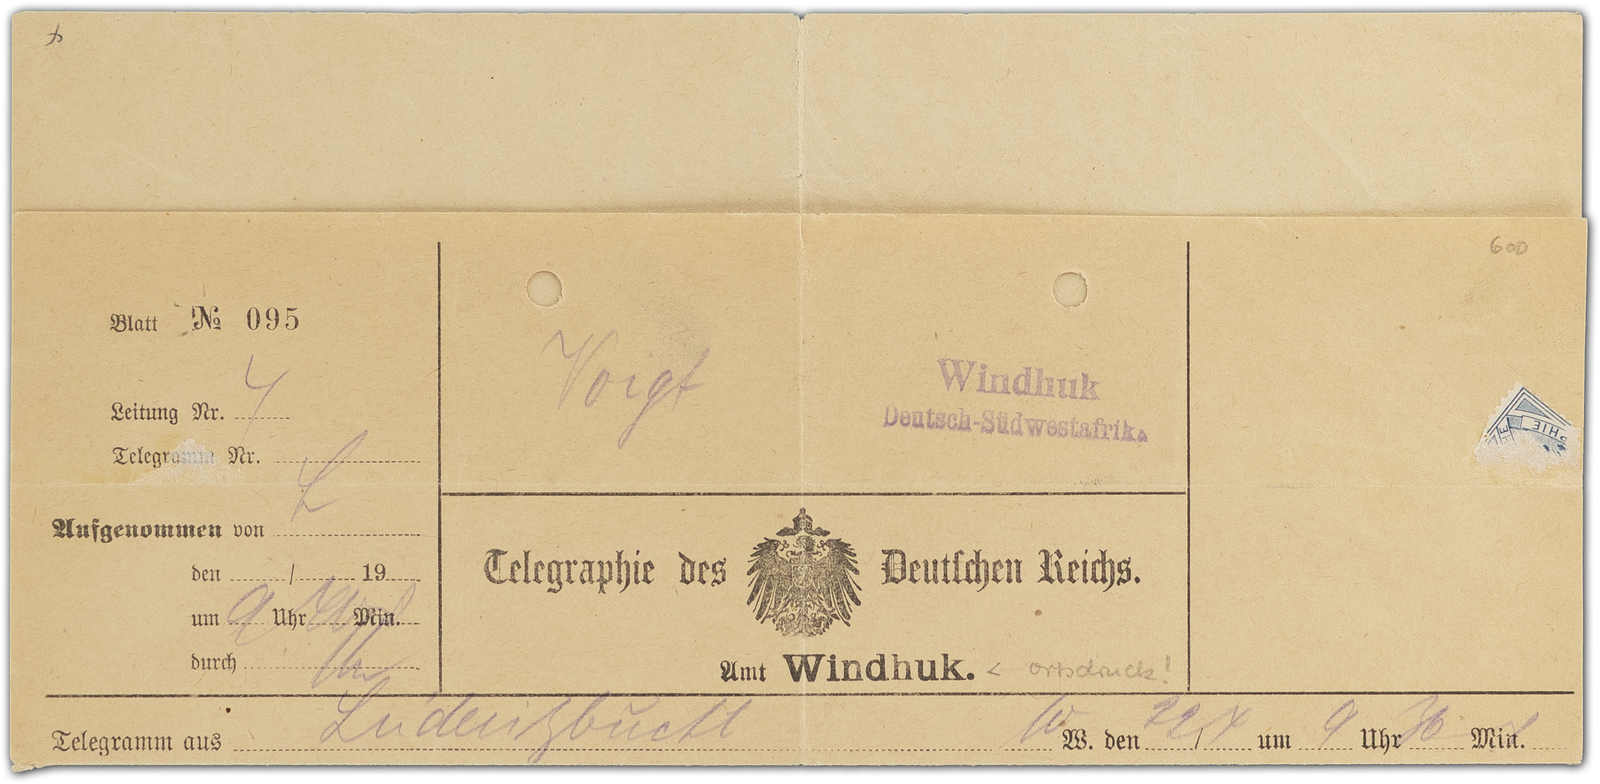 600
Blatt № 095
Voigt
Windhuk
Deutsch-Südwestafrika
Leitung Nr. 4
Telegramm Nr.
Aufgenommen von L
den / 19
um 9 Uhr Min.
durch
Telegraphie des Deutschen Reichs.
Amt Windhuk. < Ortsdruck!
Telegramm aus Lüderitzbucht W. den 22/X um 9 Uhr 30 Min.